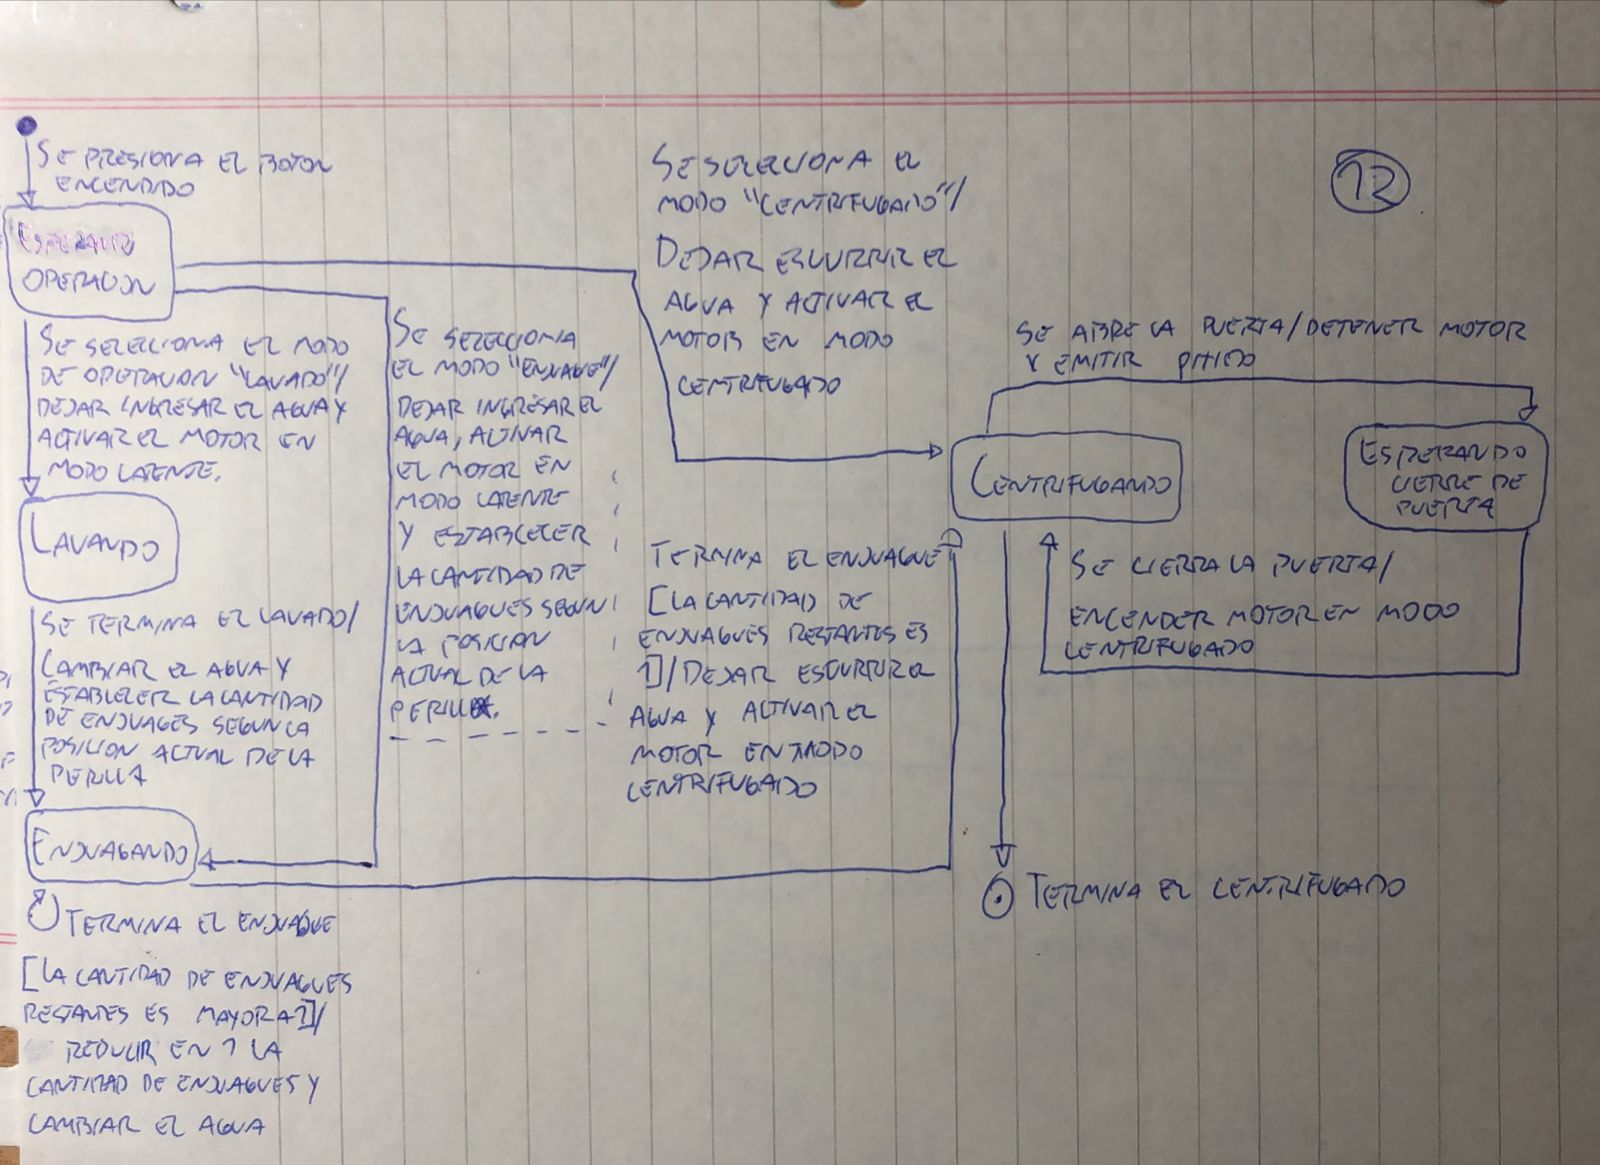 SE PRESIONA EL BOTON
ENCENDIDO
ESPERANDO
OPERACION
SE SELECCIONA EL MODO
DE OPERACION "LAVADO"/
DEJAR INGRESAR EL AGUA Y
ACTIVAR EL MOTOR EN
MODO LATENTE.
LAVANDO
SE TERMINA EL LAVADO/
CAMBIAR EL AGUA Y
ESTABLECER LA CANTIDAD
DE ENJUAGES SEGUN LA
POSICION ACTUAL DE LA
PERILLA
ENJUAGANDO
TERMINA EL ENJUAGUE
[LA CANTIDAD DE ENJUAGUES
RESTANTES ES MAYOR A 1]/
REDUCIR EN 1 LA
CANTIDAD DE ENJUAGUES Y
CAMBIAR EL AGUA
SE SELECCIONA
EL MODO "ENJUAGUE"/
DEJAR INGRESAR EL
AGUA, ACTIVAR
EL MOTOR EN
MODO LATENTE
Y ESTABLECER
LA CANTIDAD DE
ENJUAGUES SEGUN
LA POSICION
ACTUAL DE LA
PERILLA.
SE SELECCIONA EL
MODO "CENTRIFUGADO"/
DEJAR ESCURRIR EL
AGUA Y ACTIVAR EL
MOTOR EN MODO
CENTRIFUGADO
TERMINA EL ENJUAGUE
[LA CANTIDAD DE
ENJUAGUES RESTANTES ES
1]/ DEJAR ESCURRIR EL
AGUA Y ACTIVAR EL
MOTOR EN MODO
CENTRIFUGADO
12
SE ABRE LA PUERTA/DETENER MOTOR
Y EMITIR PITIDO
CENTRIFUGANDO
ESPERANDO
CIERRE DE
PUERTA
SE CIERRA LA PUERTA/
ENCENDER MOTOR EN MODO
CENTRIFUGADO
TERMINA EL CENTRIFUGADO